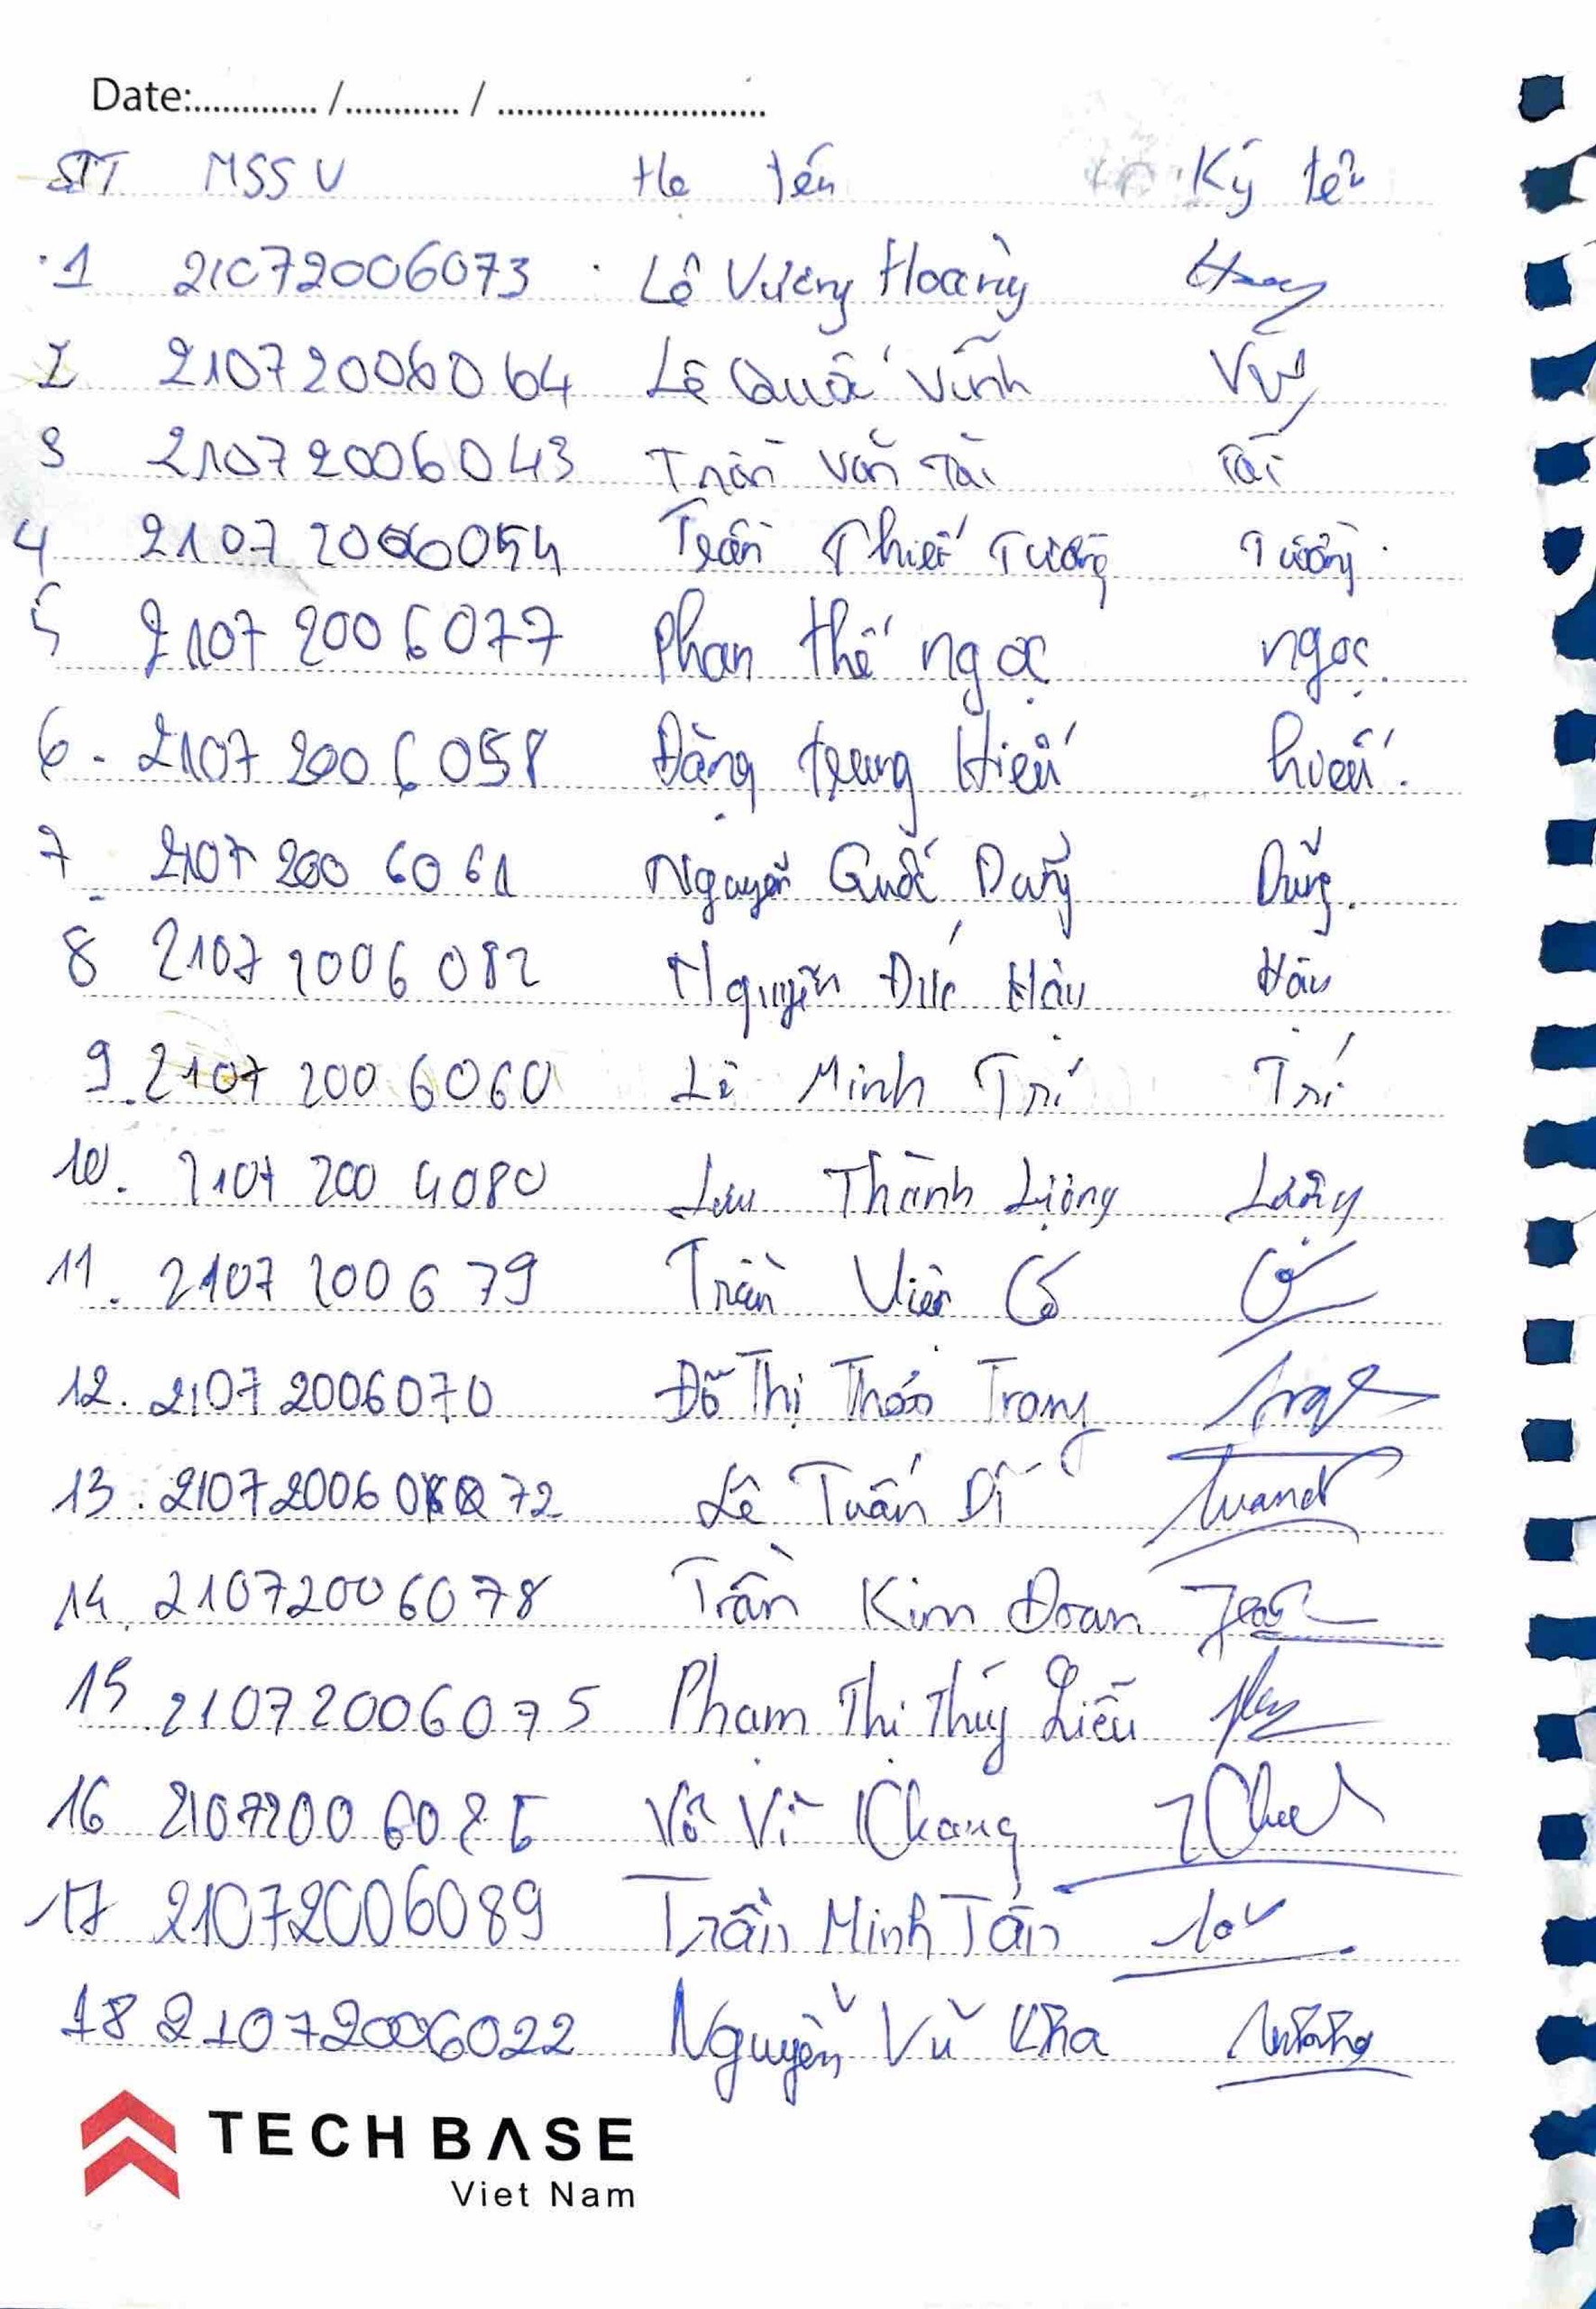 Date:............ /........... / ..........................
STT MSSV Họ tên Ký tên
1 21072006073 Lê Vương Hoàng
2 21072006064 Lê Quốc Vĩnh
3 21072006043 Trần Văn Tài Tài
4 21072006054 Trần Thiết Tường Tường
5 21072006077 Phan thế ngọc ngọc.
6. 21072006058 Đặng trung Hiếu hiếu.
7 21072006061 Nguyễn Quốc Dũng Dũng.
8 21072006082 Nguyễn Đức Hậu Hậu
9. 21072006060 Lê Minh Trí Trí
10. 21072004080 Lưu Thành Lượng Lượng
11. 2107200679 Trần Viên Cơ
12. 21072006070 Đỗ Thị Thảo Trang
13. 21072006072 Lê Tuấn Dĩ
14. 21072006078 Trần Kim Đoan
15 21072006075 Phạm Thị Thúy Liễu
16 2107200608 Võ Vĩ Khang
17 21072006089 Trần Minh Tấn
18 21072006022 Nguyễn Vũ Kha
TECHBASE
Viet Nam